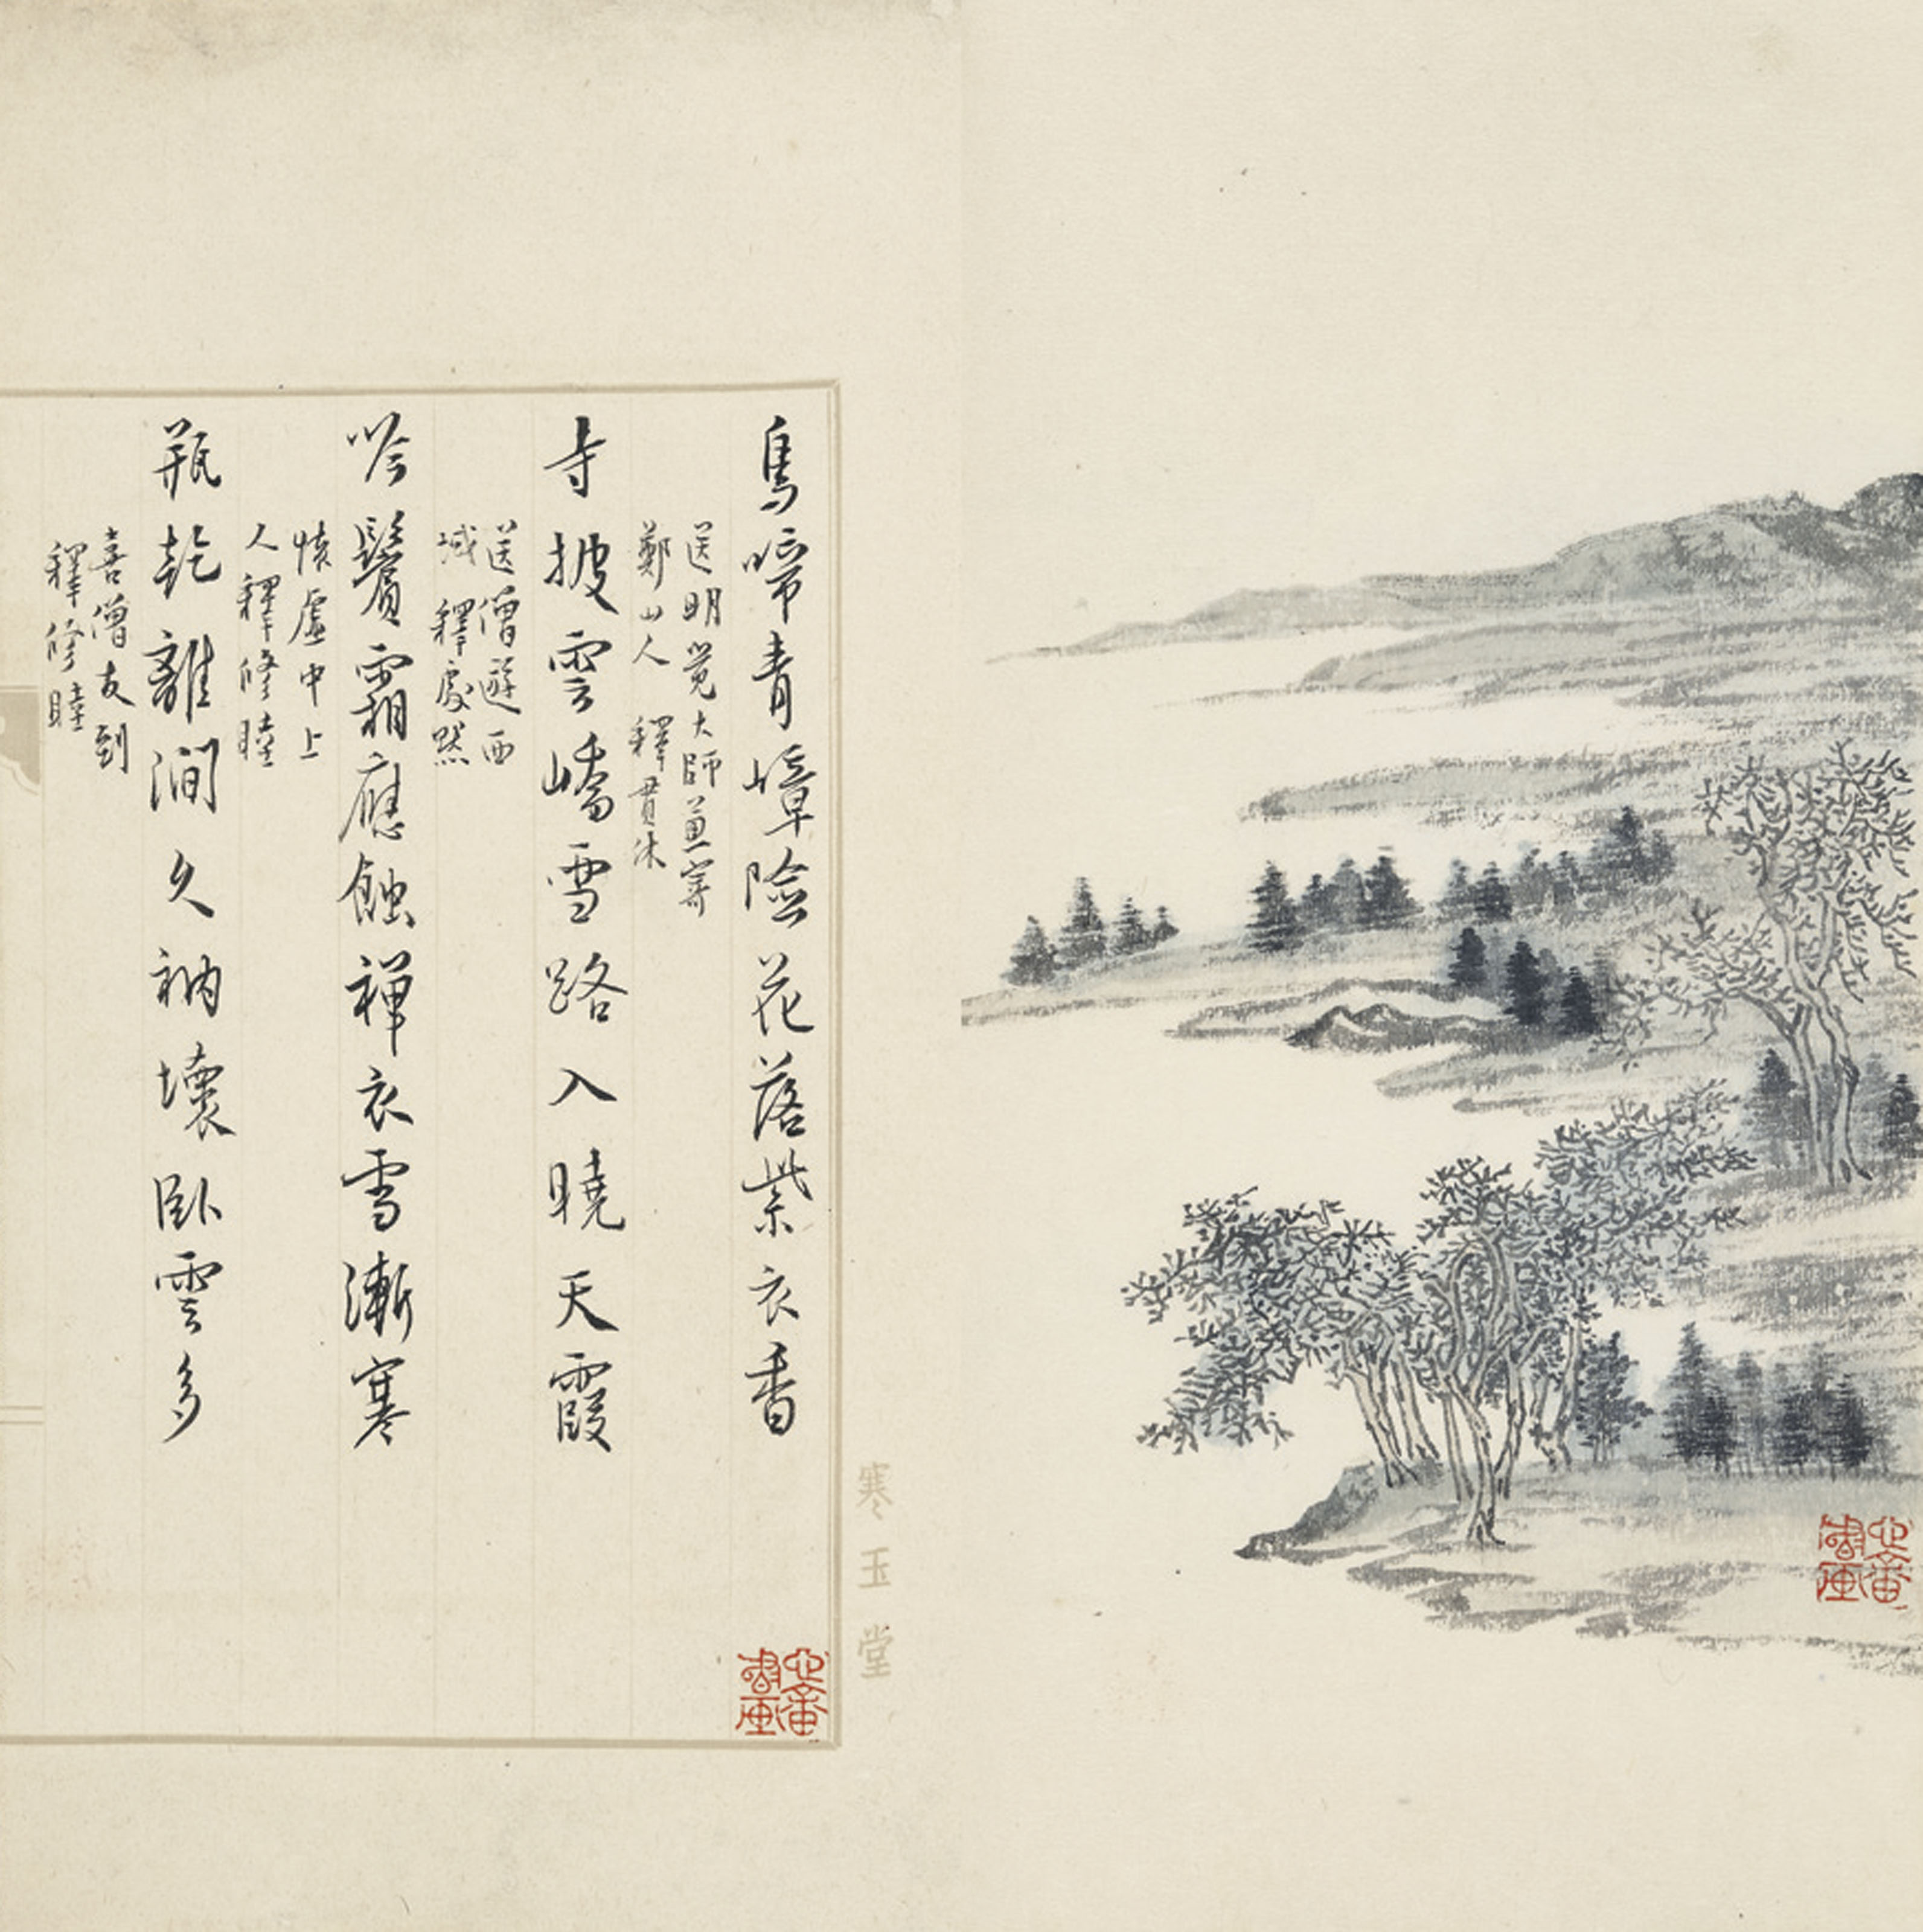 鳥啼青嶂險花落紫衣香
送明覺大師兼寄
鄭山人 釋貫休
寺披雲嶠雪路入曉天霞
送僧遊西
域 釋處默
吟鬢霜應蝕禪衣雪漸寒
懷虛中上
人釋修睦
瓶乾離澗久衲壞臥雲多
喜僧友到
釋修睦
寒玉堂
心畬書畫
心畬書畫